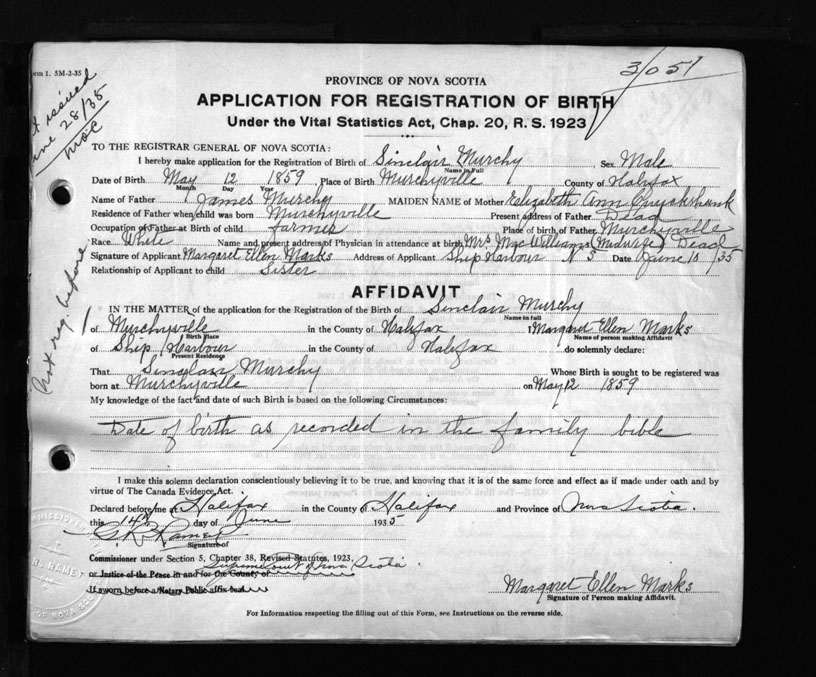 orm 1. 5M-2-35
3051
PROVINCE OF NOVA SCOTIA
APPLICATION FOR REGISTRATION OF BIRTH
Under the Vital Statistics Act, Chap. 20, R. S. 1923
issued
June 28/35
TO THE REGISTRAR GENERAL OF NOVA SCOTIA:
I hereby make application for the Registration of Birth of Sinclair Murchy Sex Male
Name in Full
Date of Birth May 12 1859 Place of Birth Murchyville County of Halifax
Month Day Year
Name of Father James Murchy MAIDEN NAME of Mother Elizabeth Ann
Residence of Father when child was born Murchyville Present address of Father Dead
Occupation of Father at Birth of child farmer Place of birth of Father Murchyville
Race White Name and present address of Physician in attendance at birth Mrs. MacWilliams Midwife Dead
Signature of Applicant Margaret Ellen Marks Address of Applicant Ship Harbour N S Date June 10/35
Relationship of Applicant to child Sister
Not reg. before
AFFIDAVIT
IN THE MATTER of the application for the Registration of the Birth of Sinclair Murchy
Name in full
of Murchyville in the County of Halifax I Margaret Ellen Marks
Birth Place Name of person making Affidavit
of Ship Harbour in the County of Halifax do solemnly declare:
Present Residence
That Sinclair Murchy Whose Birth is sought to be registered was
born at Murchyville on May 12 1859
My knowledge of the fact and date of such Birth is based on the following Circumstances:
Date of birth as recorded in the family bible
I make this solemn declaration conscientiously believing it to be true, and knowing that it is of the same force and effect as if made under oath and by
virtue of The Canada Evidence Act.
Declared before me at Halifax in the County of Halifax and Province of Nova Scotia.
this 14th day of June 1935
Signature of
Commissioner under Section 5, Chapter 38, Revised Statutes, 1923,
Supreme Court of Nova Scotia.
or Justice of the Peace in and for the County of
If sworn before a Notary Public affix seal
Margaret Ellen Marks
Signature of Person making Affidavit.
For Information respecting the filling out of this Form, see Instructions on the reverse side.